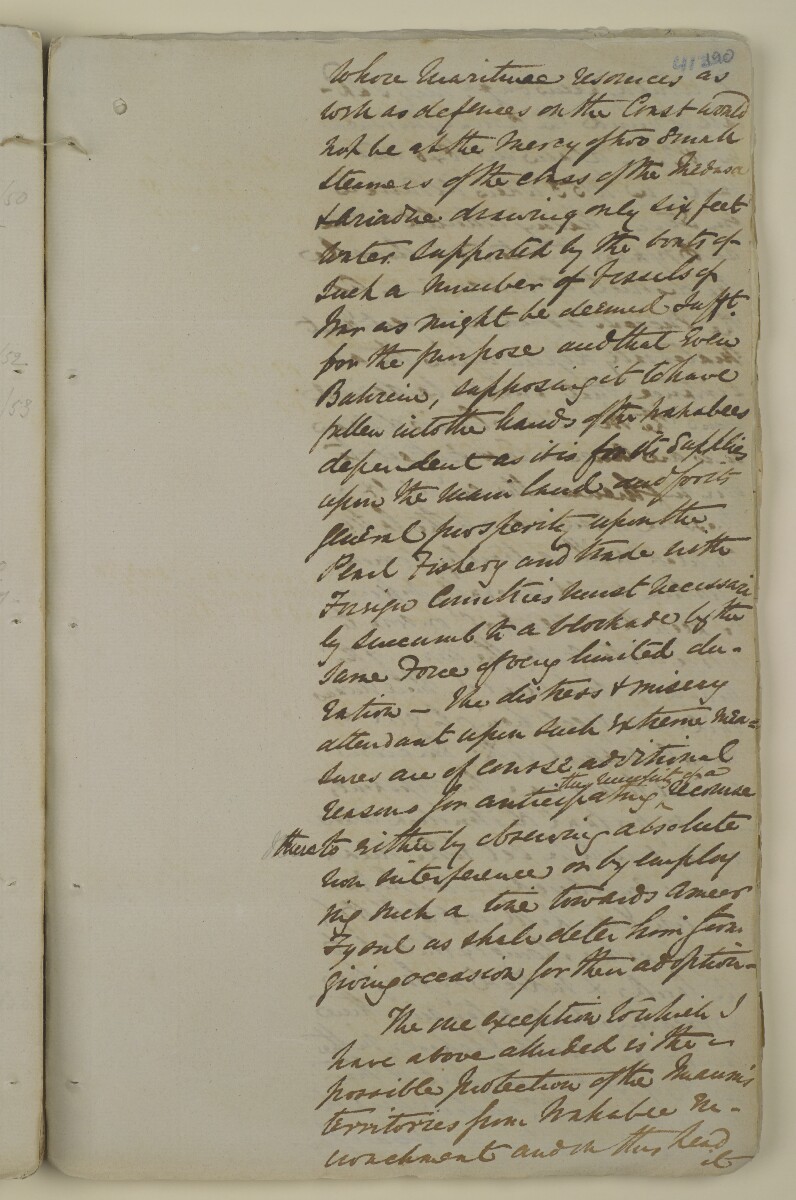 whose Maritime resources as
well as defences on the Coast would
not be at the mercy of two Small
Steamers of the class of the Medusa
& Ariadne drawing only six feet
water supported by the boats of
such a number of Vessels of
War as might be deemed Sufft.
for the purpose and that even
Bahrein, supposing it to have
fallen into the hands of the Wahabees
dependent as it is for its Supplies
upon the main land and for its
general prosperity upon the
Pearl Fishery and trade with
Foreign Countries must necessari
ly succumb to a blockade by the
same Force of very limited du-
ration — The distress & misery
attendant upon such extreme mea=
sures are of course additional
the necessity of a
reasons for anticipating recourse
thereto either by observing absolute
non interference or by employ
ing such a tone towards Ameer
Fysul as shall deter him from
giving occasion for their adoption—
The one exception to which I
have above alluded is the
possible protection of the Imaum's
territories from Wahabee En-
croachment and on this head
it